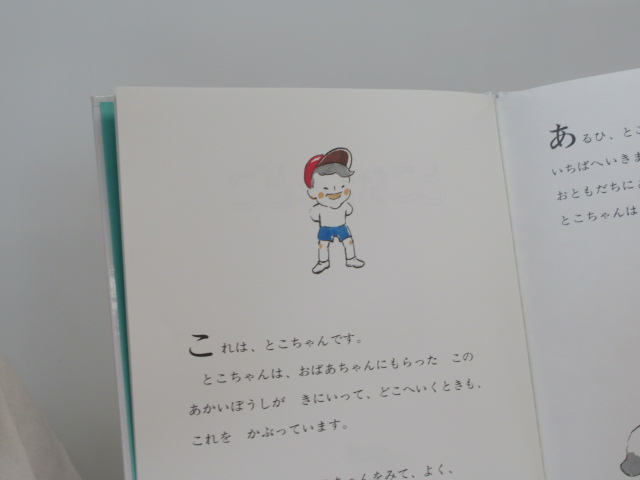 これは、とこちゃんです。
とこちゃんは、おばあちゃんにもらった この
あかいぼうしが きにいって、どこへいくときも、
これを かぶっています。
ちゃんをみて、よく、
あるひ、とこ
いちばへいきま
おともだちに
とこちゃんは